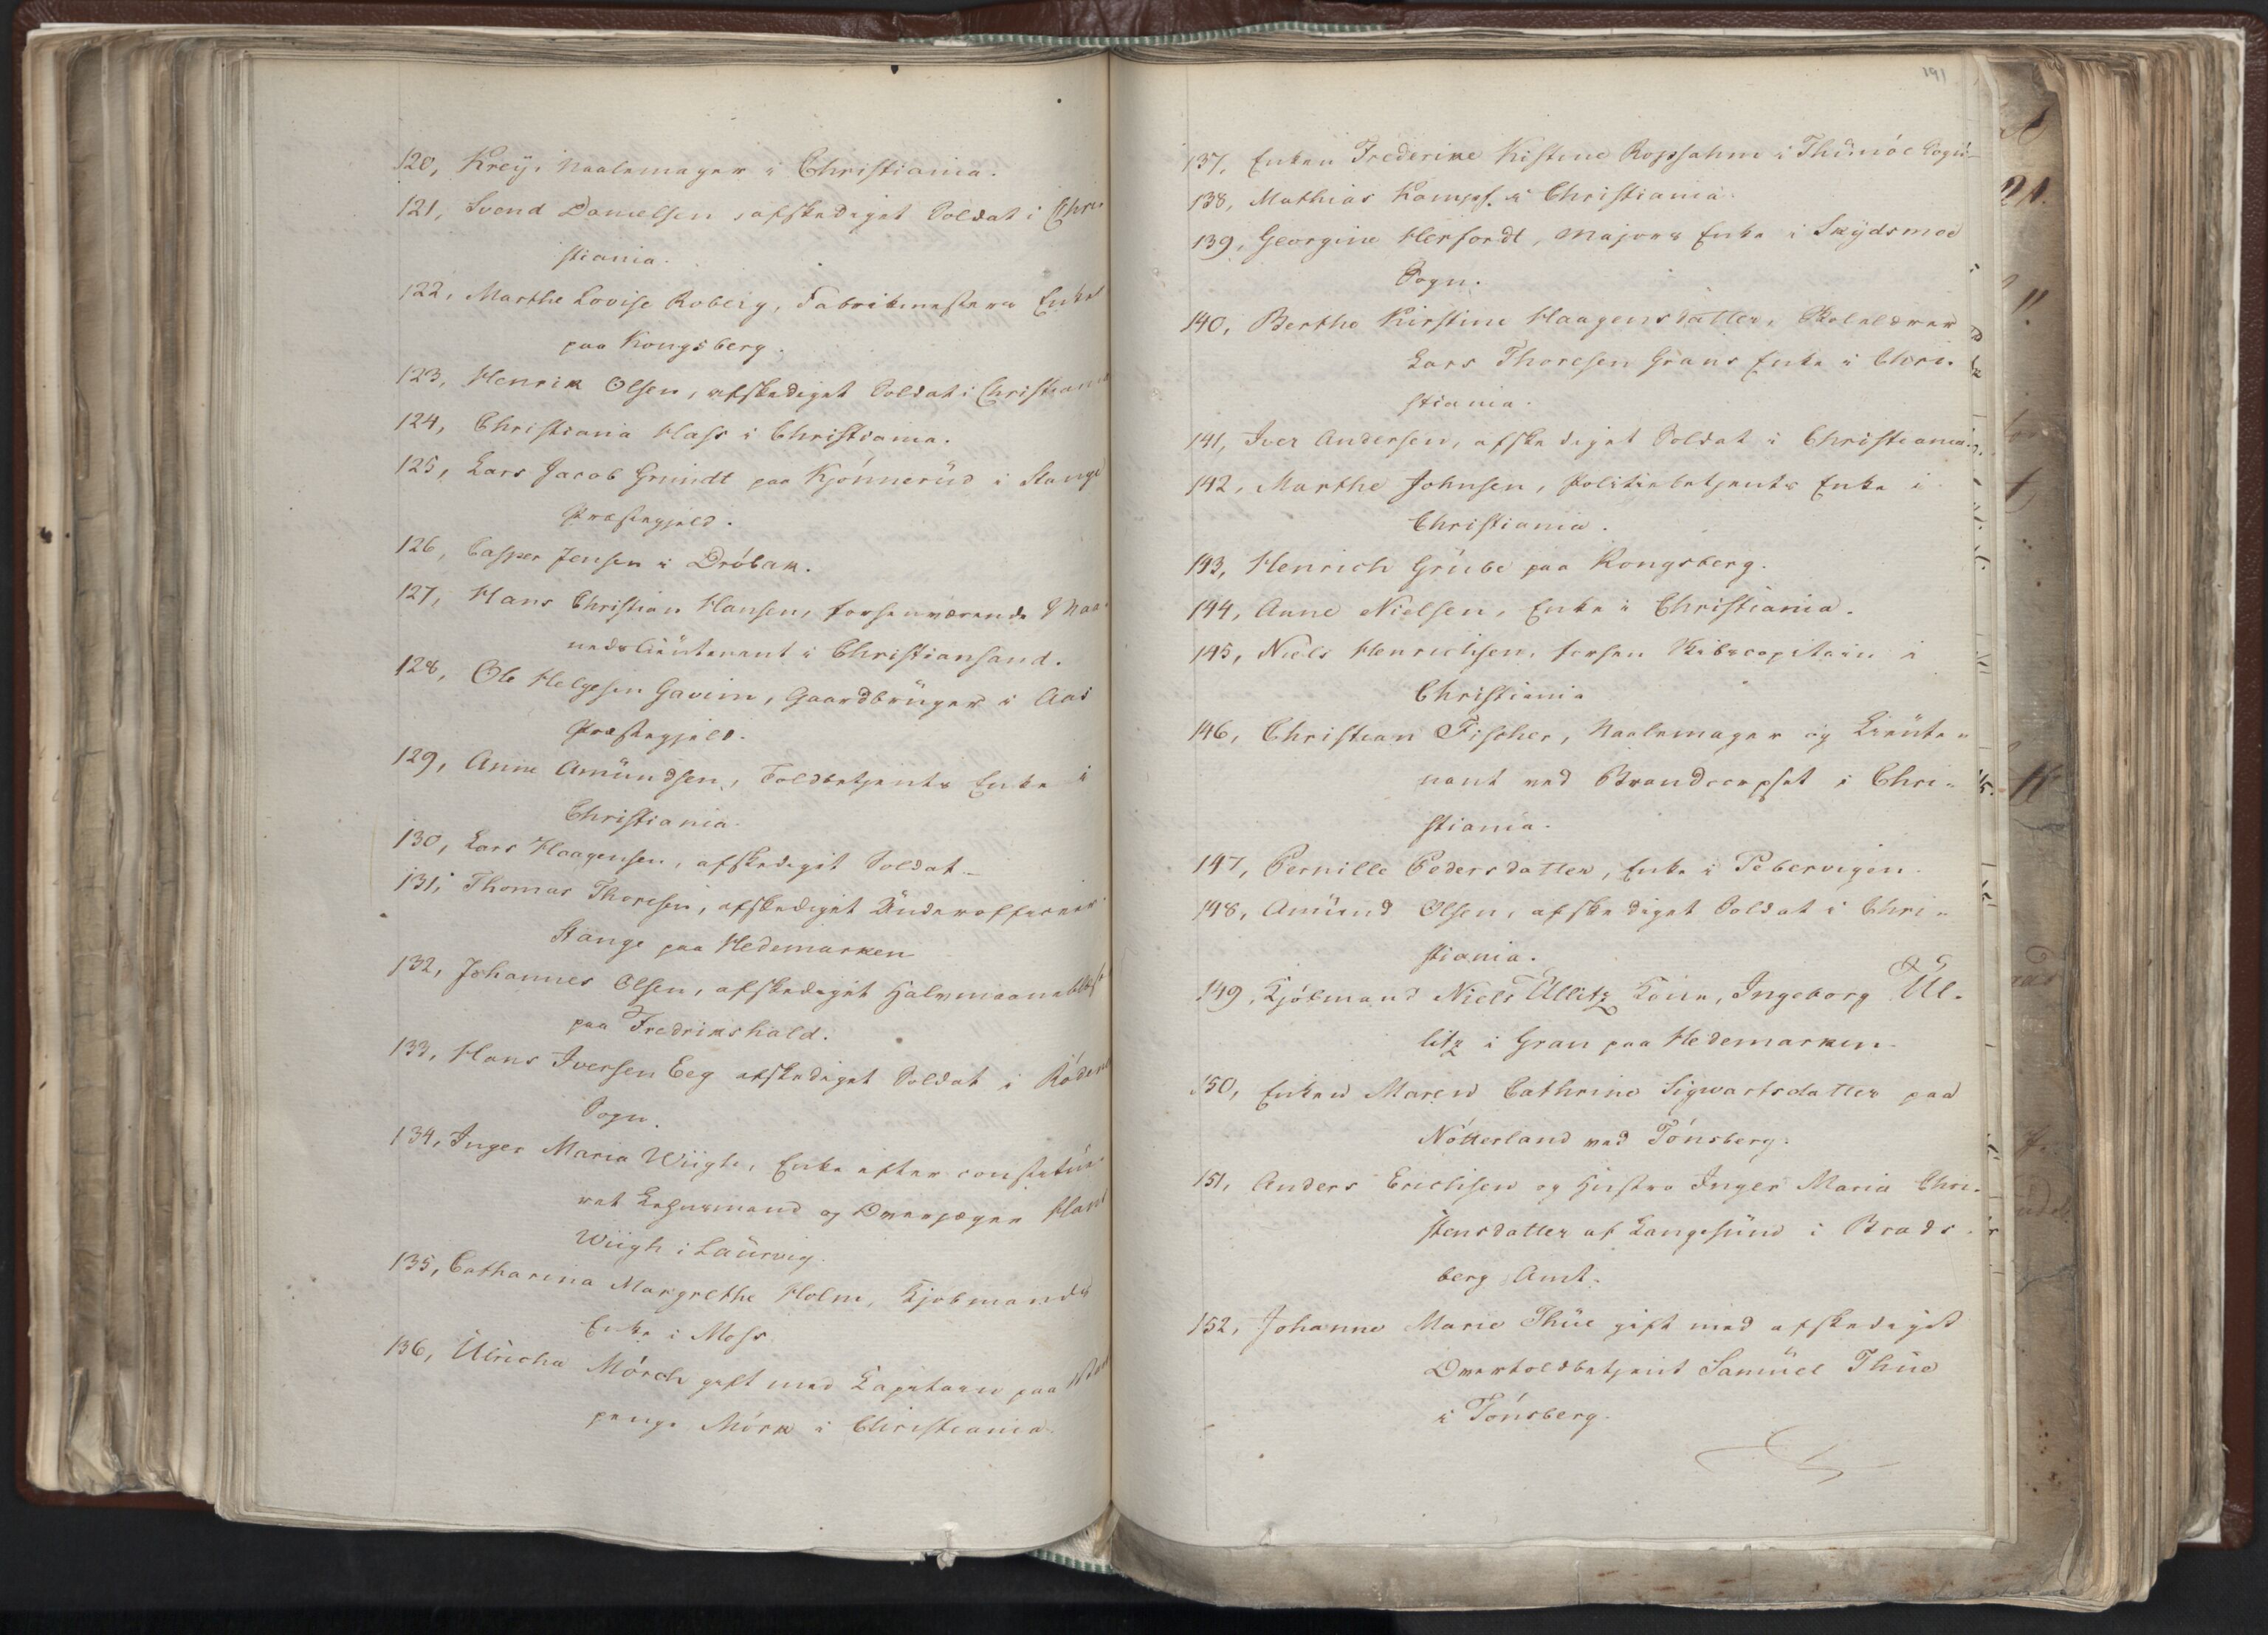 120, Krey, Naalemager i Christiania.
121, Svend Danielsen, afskediget Soldat i Chri-
stiania.
122, Marthe Lovise Roberg, Fabrikmesters Enke
paa Kongsberg.
123, Henrik Olsen, afskediget Soldat i Christiania
124, Christiana Hass i Christiania.
125, Lars Jacob Grundt paa Kjønnerud i Stange
Præstegjeld.
126, Casper Jensen i Drøbak.
127, Hans Christian Hansen, forhenværende Maa-
nedslieutenant i Christiansand.
128, Ole Helgesen Gavim, Gaardbruger i Aas
Præstegjeld.
129, Anne Amundsen, Toldbetjents Enke i
Christiania.
130, Lars Haagensen, afskediget Soldat
131, Thomas Thoresen, afskediget Underofficeer
Stange paa Hedemarken
132, Johannes Olsen, afskediget
paa Fredrikshald.
133, Hans Iversen Eeg afskediget Soldat i Rødenes
Sogn.
134, Inger Maria Wiigh, Enke efter constitue-
ret Lehnsmand og Overjæger Hans
Wiigh i Laurvig.
135, Catharina Margrethe Holm, Kjøbmands
Enke i Moss
136, Ulricha Mörch gift med Capitain paa
penge Mörk i Christiania.
191
137, Enken Frederike Kistine Ropsahm i Thimöe Sogn
138, Mathias Kamps. i Christiania.
139, Georgine Herfordt, Majors Enke i Skydsmoe
Sogn.
140, Berthe Kirstine Haagensdatter, Skolelærer
Lars Thoresen Grans Enke i Chri-
stiania.
141, Iver Andersen, afskediget Soldat i Christiania.
142, Marthe Johnsen, Politiebetjents Enke i
Christiania.
143, Henrich Grube paa Kongsberg.
144, Anne Nielsen, Enke i Christiania.
145, Niels Henrichsen, forhen Skibscapitain i
Christiania
146, Christian Fischer, Naalemager og Lieute-
nant ved Brandcorpset i Chri-
stiania.
147, Pernille Pedersdatter, Enke i Pebervigen.
148, Amund Olsen, afskediget Soldat i Chri-
stiania.
149, Kjøbmand Niels Ullitz Kone, Ingeborg Ul-
litz i Gran paa Hedemarken.
150, Enken Maren Cathrine Sigwartsdatter paa
Nøtterland ved Tønsberg.
151, Anders Erichsen og Hustro Inger Maria Chri-
stensdatter af Langesund i Brads-
berg Amt.
152, Johanne Marie Thue gift med afskediget
Overtoldbetjent Samuel Thue
i Tønsberg.